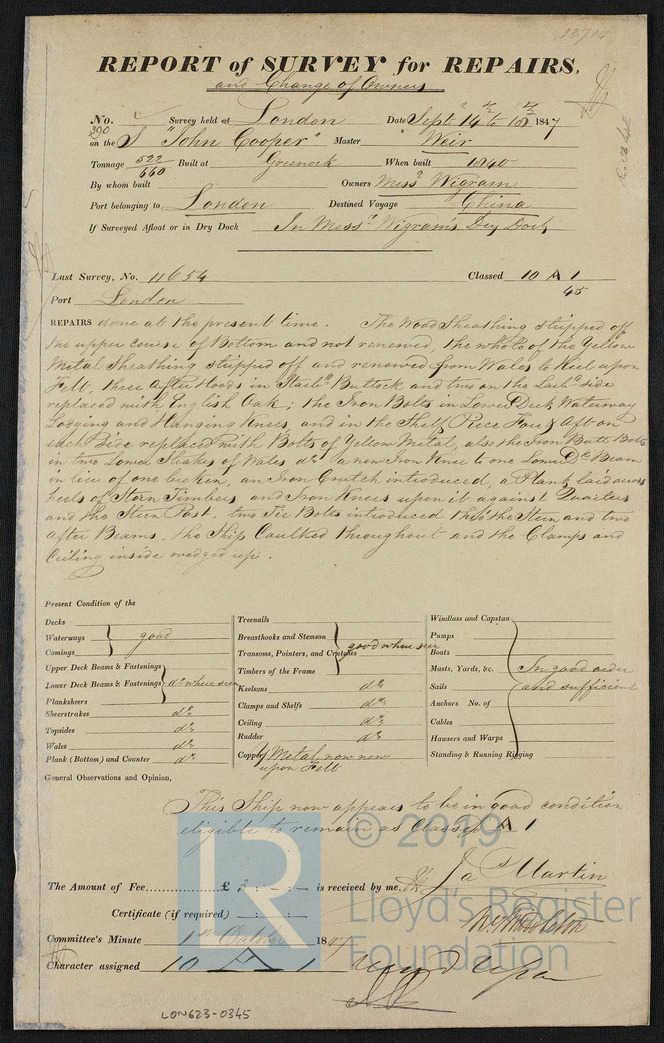 REPORT of SURVEY for REPAIRS,
and Change of Owners
No. 390 Survey held at London Date Sept 14 to 1847
on the S "John Cooper" Master Weir
Tonnage 522/660 Built at Greenock When built 1840
By whom built Owners Messrs Wigram
Port belonging to London Destined Voyage China
If Surveyed Afloat or in Dry Dock In Messrs Wigram's Dry Dock
Last Survey, No. 11654 Classed 10 A 1
45
Port London
REPAIRS done at the present time. The Wood Sheathing stripped off
the upper course of Bottom and not renewed, the whole of the Yellow
Metal Sheathing stripped off and renewed from Wales to Keel upon
Felt, three After Hoods in Starbd Buttock and two on the Larbd side
replaced with English Oak; the Iron Bolts in Lower Deck Waterway
Lodging and Hanging Knees, and in the Shelf Piece For & Aft on
each side replaced with Bolts of Yellow Metal, also the Iron Butt Bolts
in two Lower Strakes of Wales do a new Iron Knee to one Lower Dk Beam
in lieu of one broken, an Iron Crutch introduced, a Plank laid across
heels of Stern Timbers and Iron Knees upon it against Quarters
and the Stern Post, two Tie Bolts introduced thro' the Stern and two
After Beams, the Ship Caulked throughout and the Clamps and
Ceiling inside wedged up.
Present Condition of the
Decks
Waterways good
Comings
Upper Deck Beams & Fastenings
Lower Deck Beams & Fastenings do where seen
Planksheers
Sheerstrakes do
Topsides do
Wales do
Plank (Bottom) and Counter do
Treenails
Breasthooks and Stemson good where seen
Transoms, Pointers, and Crutches
Timbers of the Frame
Keelsons do
Clamps and Shelfs do
Ceiling do
Rudder do
Copper Metal now new
upon Felt
Windlass and Capstan
Pumps
Boats
Masts, Yards, &c. In good order
Sails and sufficient
Anchors No. of
Cables
Hawsers and Warps
Standing & Running Rigging
General Observations and Opinion,
This Ship now appears to be in good condition
eligible to remain as Classed A 1
The Amount of Fee £ 2 : - : - is received by me, Ja Martin
Certificate (if required) - : - : -
Committee's Minute 1st October 1847
Character assigned 10 A 1
LON623-0345
© 2019
LR
Lloyd's Register
Foundation